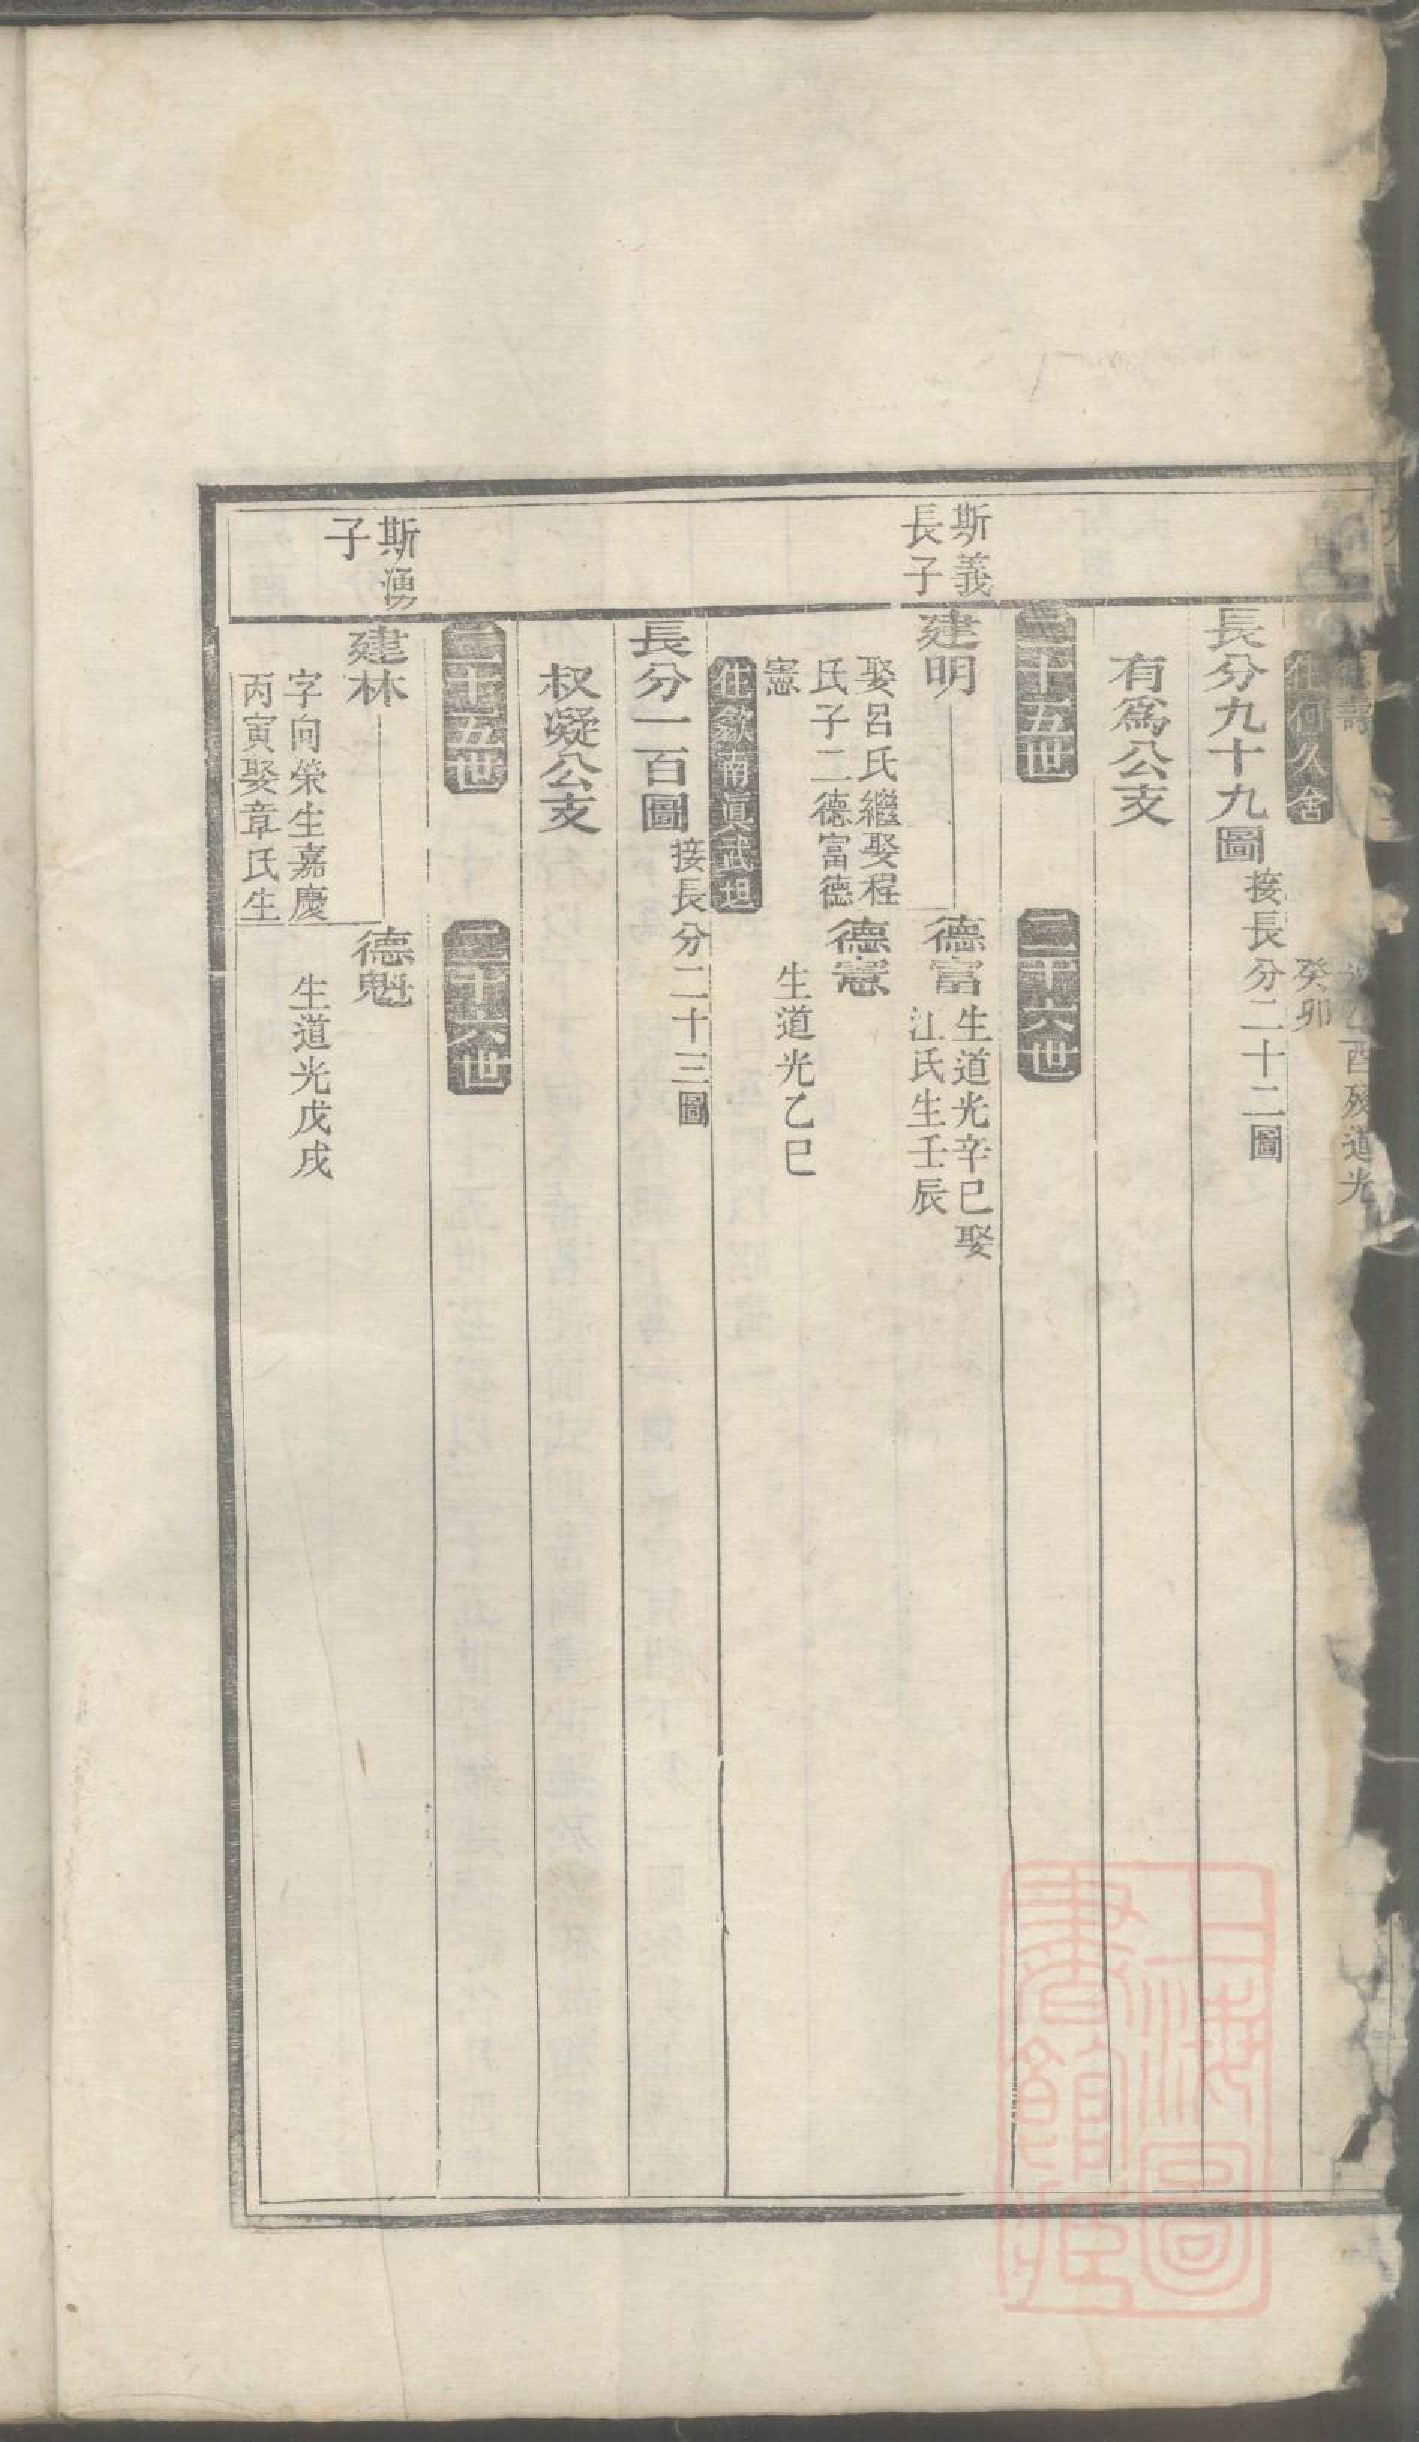 酉歿道光
癸卯
住何久舍
長分九十九圖
接長分二十二圖
有爲公支
二十五世
二十六世
斯義
長子
建明
娶呂氏繼娶程
氏子二德富德
憲
德富
生道光辛巳娶
江氏生壬辰
德憲
生道光乙巳
住歙南眞武坦
長分一百圖
接長分二十三圖
叔凝公支
二十五世
二十六世
斯湧
子
建林
字向榮生嘉慶
丙寅娶章氏生
德魁
生道光戊戌
上海圖
書館藏